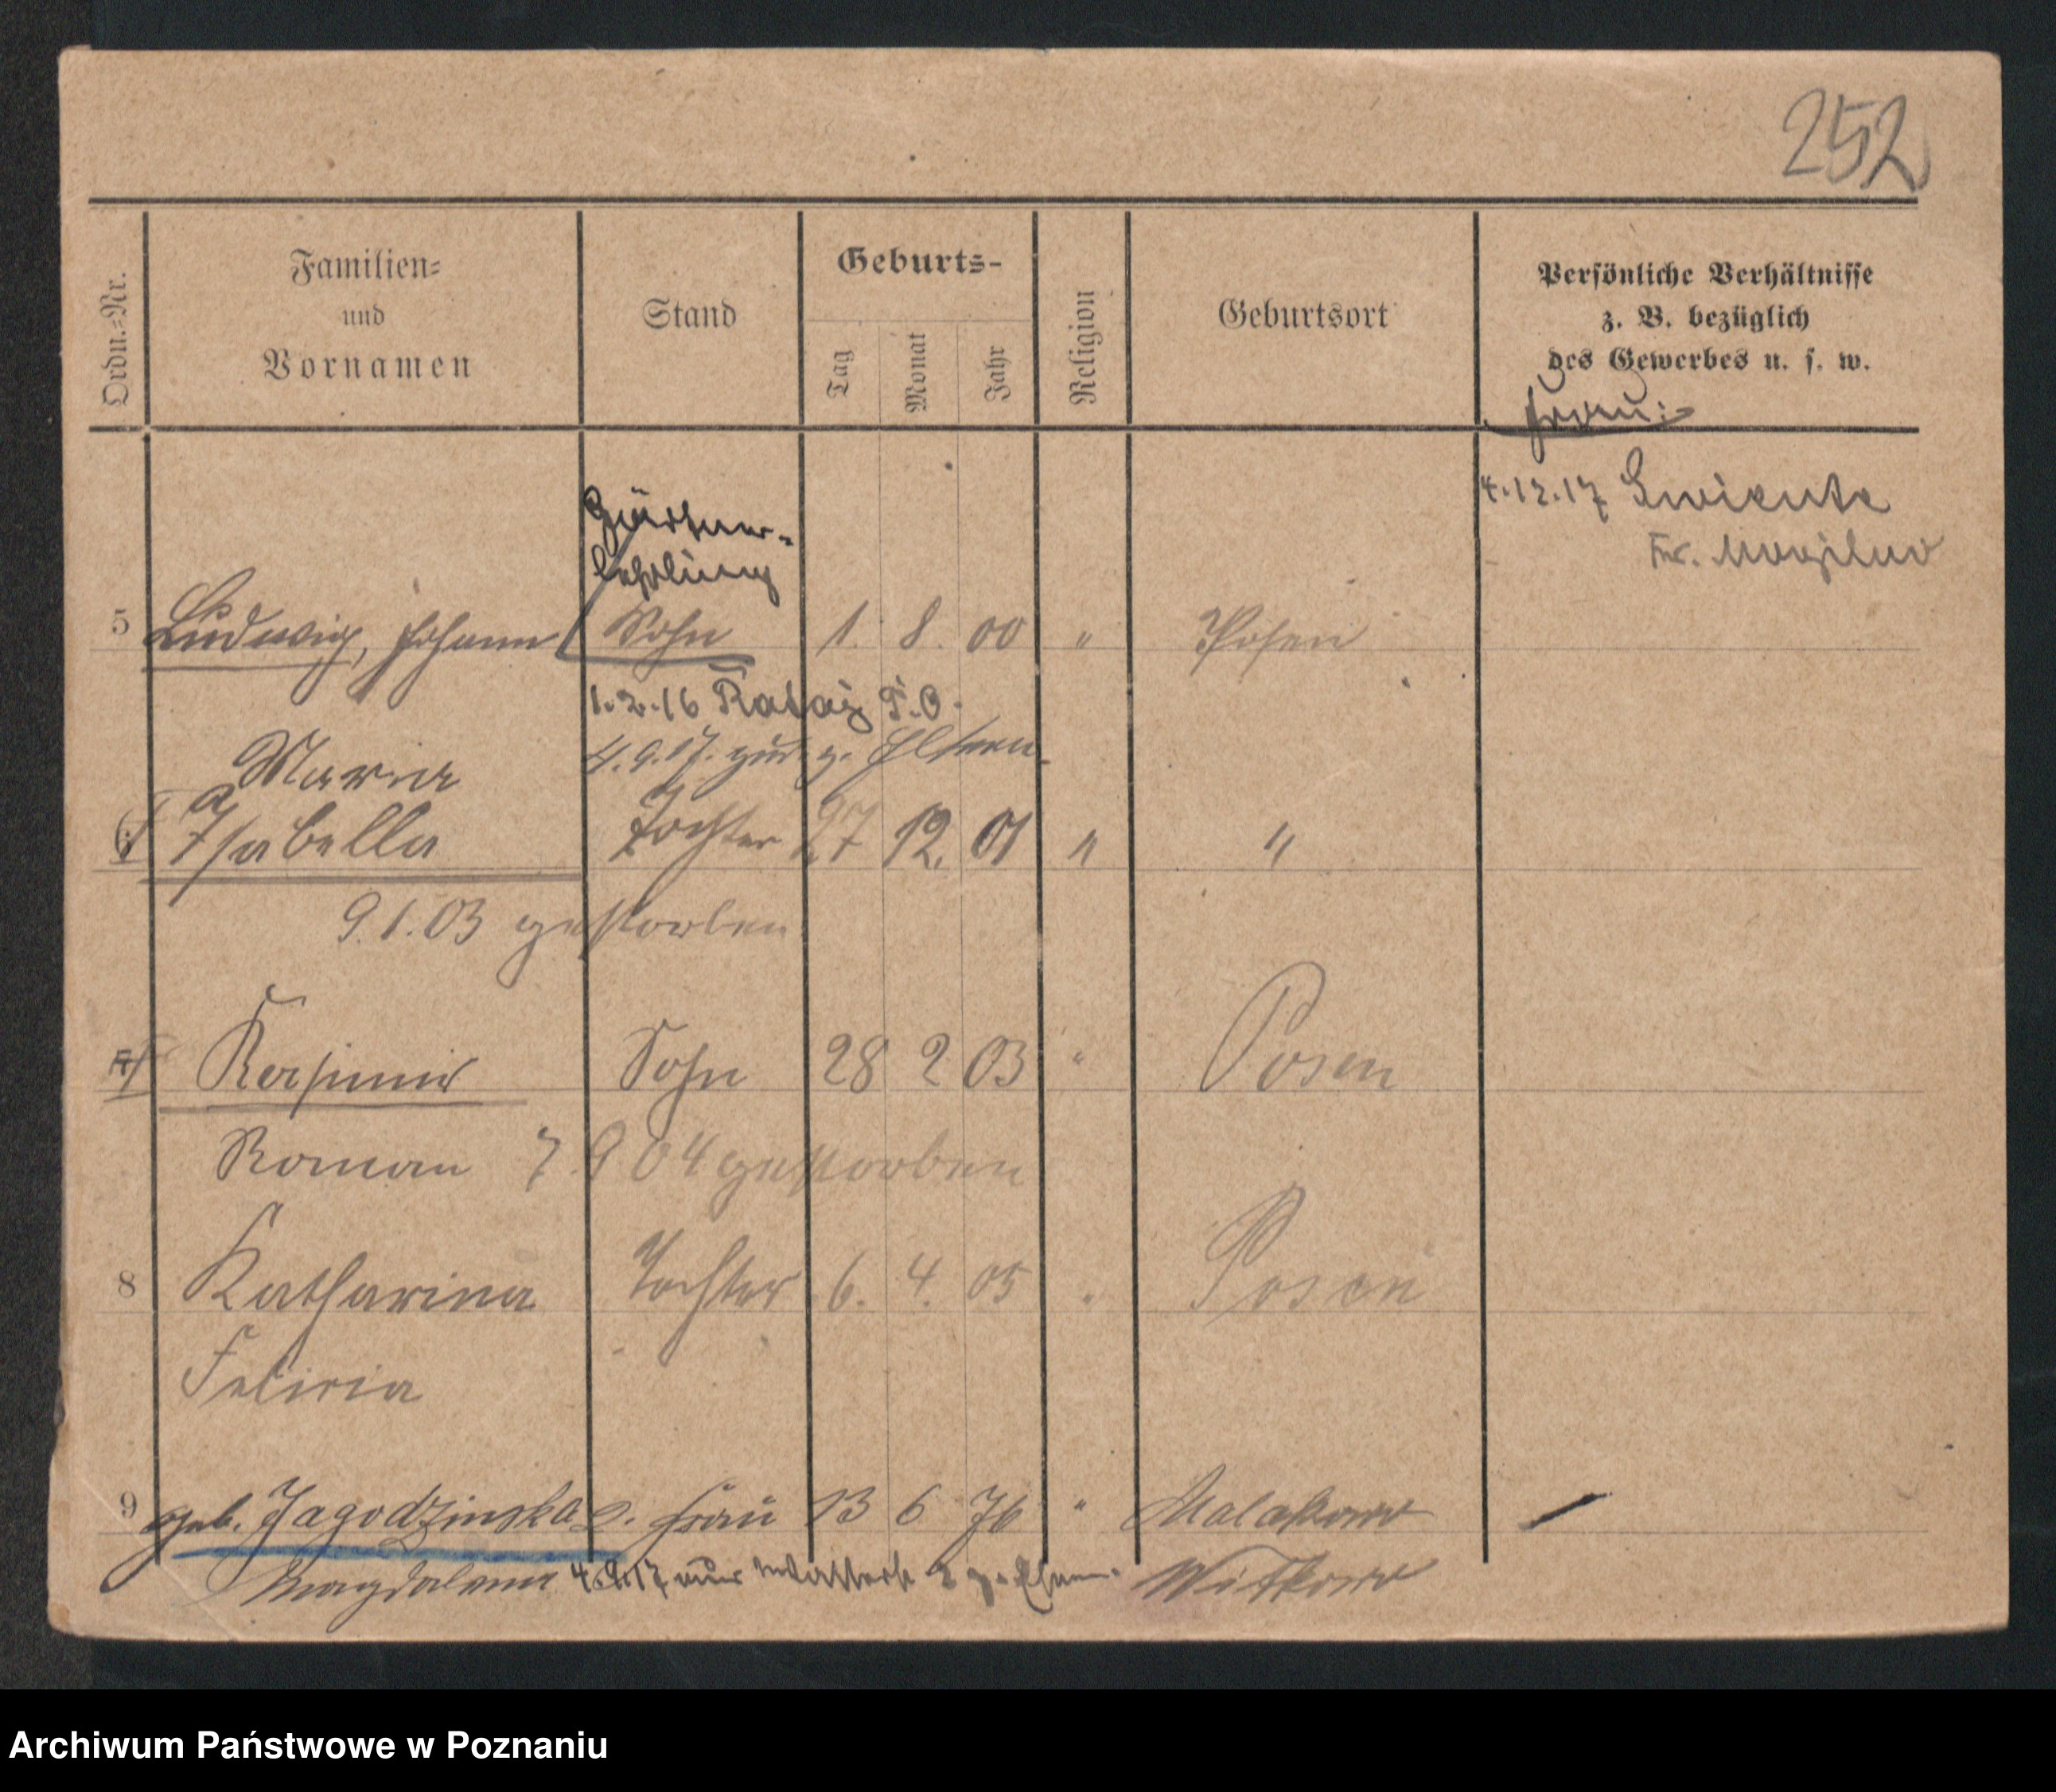 252
Ordn.-Nr.
Familien-
und
Vornamen
Stand
Geburts-
Tag
Monat
Jahr
Religion
Geburtsort
Persönliche Verhältnisse
z. B. bezüglich
des Gewerbes u. s. w.
Frau:
4.12.17
Gärtner-
lehrling
5 Ludwig, Johann Sohn 1. 8. 00 " Posen
1.2.16 Rataj P.O.
4.9.17. zur. z. Eltern.
Maria
6 Isabella Tochter 27 12. 01 " "
9.1.03 gestorben
7 Kasimir Sohn 28 2 03 " Posen
Roman 7.9 04 gestorben
8 Katharina Tochter 6. 4. 05 " Posen
Felicia
9 geb. Jagodzinska 2. Frau 13 6 76 "
Magdalena 4.9.17 Witkowo
Archiwum Państwowe w Poznaniu